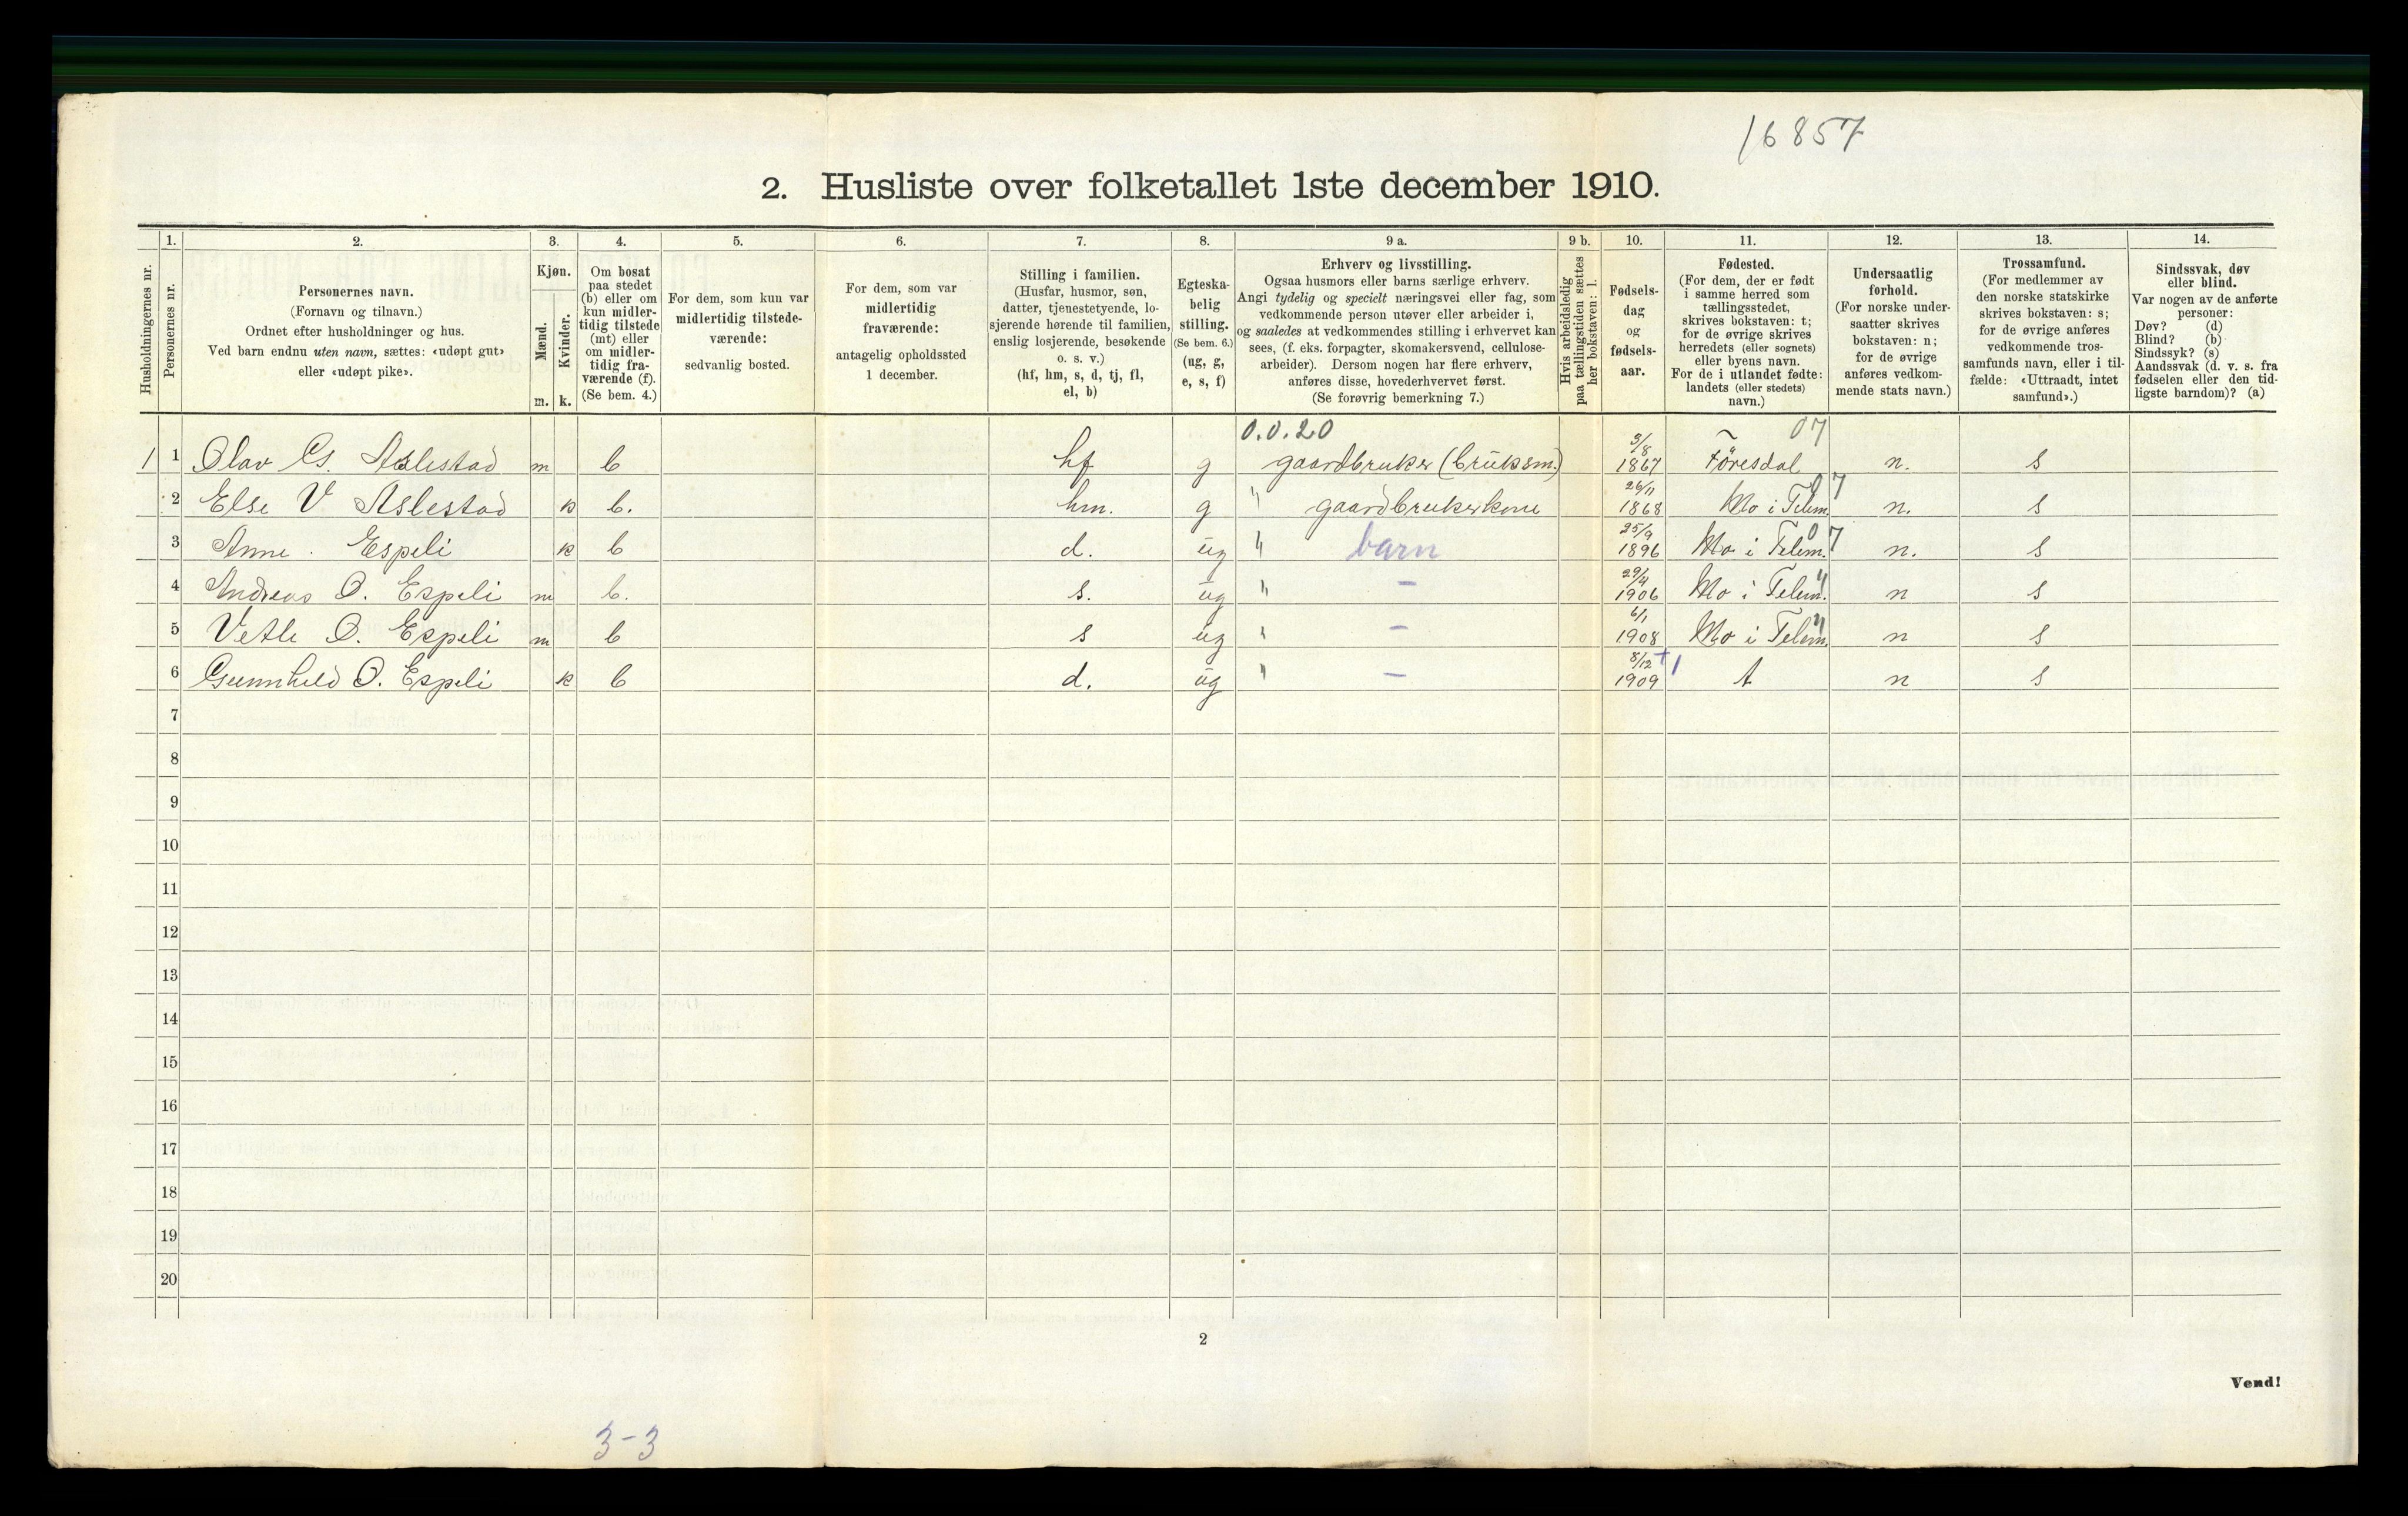 16857
2. Husliste over folketallet 1ste december 1910.
1. 2. 3. 4. 5. 6. 7. 8. 9 a. 9 b. 10. 11. 12. 13. 14.
Husholdningernes nr.
Personernes nr.
Personernes navn.
(Fornavn og tilnavn.)
Ordnet efter husholdninger og hus.
Ved barn endnu uten navn, sættes: «udøpt gut»
eller «udøpt pike».
Kjøn.
Mænd.
Kvinder.
m. k.
Om bosat
paa stedet
(b) eller om
kun midler-
tidig tilstede
(mt) eller
om midler-
tidig fra-
værende (f).
(Se bem. 4.)
For dem, som kun var
midlertidig tilstede-
værende:
sedvanlig bosted.
For dem, som var
midlertidig
fraværende:
antagelig opholdssted
1 december.
Stilling i familien.
(Husfar, husmor, søn,
datter, tjenestetyende, lo-
sjerende hørende til familien,
enslig losjerende, besøkende
o. s. v.)
(hf, hm, s, d, tj, fl,
el, b)
Egteska-
belig
stilling.
(Se bem. 6.)
(ug, g,
e, s, f)
Erhverv og livsstilling.
Ogsaa husmors eller barns særlige erhverv.
Angi tydelig og specielt næringsvei eller fag, som
vedkommende person utøver eller arbeider i,
og saaledes at vedkommendes stilling i erhvervet kan
sees, (f. eks. forpagter, skomakersvend, cellulose-
arbeider). Dersom nogen har flere erhverv,
anføres disse, hovederhvervet først.
(Se forøvrig bemerkning 7.)
Hvis arbeidsledig
paa tællingstiden sættes
her bokstaven: l.
Fødsels-
dag
og
fødsels-
aar.
Fødested.
(For dem, der er født
i samme herred som
tællingsstedet,
skrives bokstaven: t;
for de øvrige skrives
herredets (eller sognets)
eller byens navn.
For de i utlandet fødte:
landets (eller stedets)
navn.)
Undersaatlig
forhold.
(For norske under-
saatter skrives
bokstaven: n;
for de øvrige
anføres vedkom-
mende stats navn.)
Trossamfund.
(For medlemmer av
den norske statskirke
skrives bokstaven: s;
for de øvrige anføres
vedkommende tros-
samfunds navn, eller i til-
fælde: «Uttraadt, intet
samfund».)
Sindssvak, døv
eller blind.
Var nogen av de anførte
personer:
Døv? (d)
Blind? (b)
Sindssyk? (s)
Aandssvak (d. v. s. fra
fødselen eller den tid-
ligste barndom)? (a)
0.0.20 07
1 1 Olav G. Aslestad m b hf g gaardbruker (bruksm.) 3/8 1867 Föresdal n. s
2 Else V Aslestad k b. hm. g " gaardbrukerkone 26/11 1868 Mo i Telem 07 n. s
3 Anne . Espeli k b d. ug " barn 25/9 1896 Mo i Telem. 07 n. s
4 Andreas O. Espeli m b. s. ug " – 29/4 1906 Mo i Telem. " n s
5 Vetle O. Espeli m b s ug " – 6/1 1908 Mo i Telem. " n s
6 Gunnhild O. Espeli k b d. ug " – 8/12 1909 +1 t n s
7
8
9
10
11
12
13
14
15
16
17
18
19
20
2
Vend!
3-3